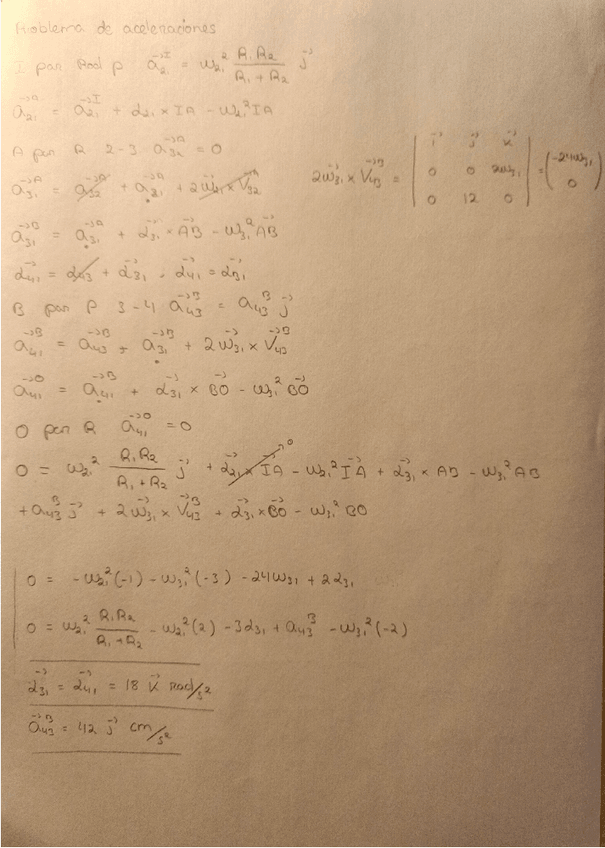 Problema de aceleraciones
I par Rod p a⃗₂₁ᴵ = ω₂₁² R₁R₂/(R₁+R₂) j⃗
a⃗₂₁ᴬ = a⃗₂₁ᴵ + α⃗₂₁ × IA - ω₂₁² IA
A par R 2-3 a⃗₃₂ᴬ = 0
a⃗₃₁ᴬ = a⃗₃₂ᴬ + a⃗₂₁ᴬ + 2ω⃗₂₁ × V⃗₃₂ᴬ
2ω⃗₃₁ × V⃗₄₃ᴮ = | i⃗ j⃗ k⃗ ; 0 0 2ω₃₁ ; 0 12 0 | = (-24ω₃₁ ; 0)
a⃗₃₁ᴮ = a⃗₃₁ᴬ + α⃗₃₁ × AB - ω₃₁² AB
α⃗₄₁ = α⃗₄₃ + α⃗₃₁ , α⃗₄₁ = α⃗₃₁
B par P 3-4 a⃗₄₃ᴮ = a₄₃ᴮ j⃗
a⃗₄₁ᴮ = a⃗₄₃ᴮ + a⃗₃₁ᴮ + 2ω⃗₃₁ × V⃗₄₃ᴮ
a⃗₄₁ᴼ = a⃗₄₁ᴮ + α⃗₃₁ × BO - ω₃₁² BO
O par R a⃗₄₁ᴼ = 0
0 = ω₂₁² R₁R₂/(R₁+R₂) j⃗ + α⃗₂₁ × IA⃗ 0 - ω₂₁² IA⃗ + α⃗₃₁ × AB - ω₃₁² AB
+ a₄₃ᴮ j⃗ + 2ω⃗₃₁ × V⃗₄₃ᴮ + α⃗₃₁ × BO - ω₃₁² BO
0 = -ω₂₁²(-1) - ω₃₁²(-3) - 24ω₃₁ + 2α₃₁
0 = ω₂₁² R₁R₂/(R₁+R₂) - ω₂₁²(2) - 3α₃₁ + a₄₃ᴮ - ω₃₁²(-2)
α⃗₃₁ = α⃗₄₁ = 18 k⃗ Rad/s²
a⃗₄₃ᴮ = 42 j⃗ cm/s²